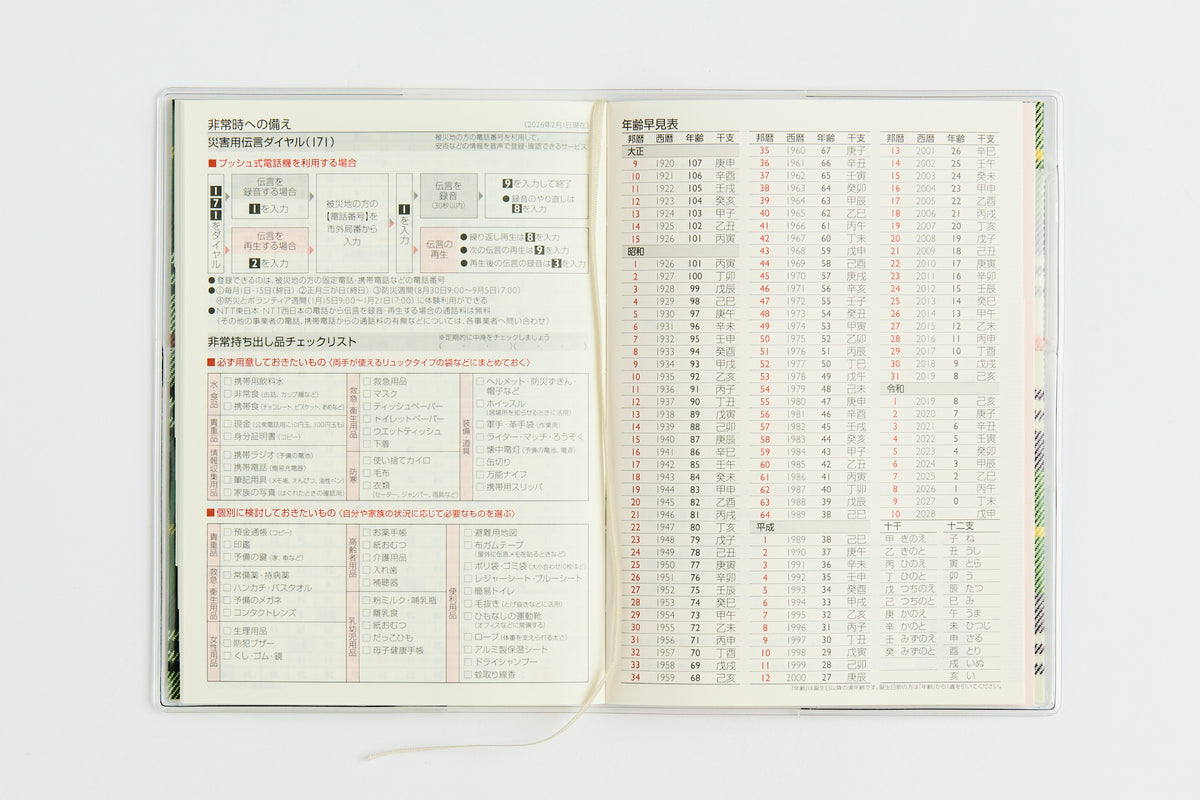 非常時への備え
(2026年2月1日現在)
災害用伝言ダイヤル(171)
被災地の方の電話番号を利用して、
安否などの情報を音声で登録・確認できるサービス
■プッシュ式電話機を利用する場合
171をダイヤル
伝言を
録音する場合
1を入力
伝言を
再生する場合
2を入力
被災地の方の
【電話番号】を
市外局番から
入力
1を入力
伝言を
録音
(30秒以内)
9を入力して終了
●録音のやり直しは
8を入力
伝言の
再生
●繰り返し再生は8を入力
●次の伝言の再生は9を入力
●再生後の伝言の録音は3を入力
●登録できるのは、被災地の方の固定電話・携帯電話などの電話番号
●①毎月1日・15日(終日) ②正月三が日(終日) ③防災週間(8月30日9:00〜9月5日17:00)
④防災とボランティア週間(1月15日9:00〜1月21日17:00)に体験利用ができる
●NTT東日本・NTT西日本の電話から伝言を録音・再生する場合の通話料は無料
(その他の事業者の電話、携帯電話からの通話料の有無などについては、各事業者へ問い合わせ)
非常持ち出し品チェックリスト
※定期的に中身をチェックしましょう
■必ず用意しておきたいもの〈両手が使えるリュックタイプの袋などにまとめておく〉
水・食品
□携帯用飲料水
□非常食(缶詰、カップ麺など)
□携帯食(チョコレート、ビスケット、あめなど)
貴重品
□現金(公衆電話用に10円玉、100円玉も)
□身分証明書(コピー)
情報収集用品
□携帯ラジオ(予備の電池)
□携帯電話(簡易充電器)
□筆記用具(メモ帳、えんぴつ、油性ペン)
□家族の写真(はぐれたときの確認用)
救急・衛生用品
□救急用品
□マスク
□ティッシュペーパー
□トイレットペーパー
□ウエットティッシュ
□下着
防寒
□使い捨てカイロ
□毛布
□衣類
(セーター、ジャンパー、雨具など)
装備・道具
□ヘルメット・防災ずきん・
帽子など
□ホイッスル
(居場所を知らせるときに活用)
□軍手・革手袋(作業用)
□ライター・マッチ・ろうそく
□懐中電灯(予備の電池、電源)
□缶切り
□万能ナイフ
□携帯用スリッパ
■個別に検討しておきたいもの〈自分や家族の状況に応じて必要なものを選ぶ〉
貴重品
□預金通帳(コピー)
□印鑑
□予備の鍵(家、車など)
救急・衛生用品
□常備薬・持病薬
□ハンカチ・バスタオル
□予備のメガネ
□コンタクトレンズ
女性用品
□生理用品
□防犯ブザー
□くし・ゴム・鏡
高齢者用品
□お薬手帳
□紙おむつ
□介護用品
□入れ歯
□補聴器
乳幼児用品
□粉ミルク・哺乳瓶
□離乳食
□紙おむつ
□だっこひも
□母子健康手帳
便利用品
□避難用地図
□布ガムテープ
(屋外に伝言メモを貼るときなど)
□ポリ袋・ゴミ袋(大小合わせ10枚ほど)
□レジャーシート・ブルーシート
□簡易トイレ
□毛抜き(とげ抜きなどに活用)
□ひもなしの運動靴
(オフィスなどに常備する)
□ロープ(体重を支えられる太さ)
□アルミ製保温シート
□ドライシャンプー
□蚊取り線香
年齢早見表
邦暦 西暦 年齢 干支
大正
9 1920 107 庚申
10 1921 106 辛酉
11 1922 105 壬戌
12 1923 104 癸亥
13 1924 103 甲子
14 1925 102 乙丑
15 1926 101 丙寅
昭和
1 1926 101 丙寅
2 1927 100 丁卯
3 1928 99 戊辰
4 1929 98 己巳
5 1930 97 庚午
6 1931 96 辛未
7 1932 95 壬申
8 1933 94 癸酉
9 1934 93 甲戌
10 1935 92 乙亥
11 1936 91 丙子
12 1937 90 丁丑
13 1938 89 戊寅
14 1939 88 己卯
15 1940 87 庚辰
16 1941 86 辛巳
17 1942 85 壬午
18 1943 84 癸未
19 1944 83 甲申
20 1945 82 乙酉
21 1946 81 丙戌
22 1947 80 丁亥
23 1948 79 戊子
24 1949 78 己丑
25 1950 77 庚寅
26 1951 76 辛卯
27 1952 75 壬辰
28 1953 74 癸巳
29 1954 73 甲午
30 1955 72 乙未
31 1956 71 丙申
32 1957 70 丁酉
33 1958 69 戊戌
34 1959 68 己亥
邦暦 西暦 年齢 干支
35 1960 67 庚子
36 1961 66 辛丑
37 1962 65 壬寅
38 1963 64 癸卯
39 1964 63 甲辰
40 1965 62 乙巳
41 1966 61 丙午
42 1967 60 丁未
43 1968 59 戊申
44 1969 58 己酉
45 1970 57 庚戌
46 1971 56 辛亥
47 1972 55 壬子
48 1973 54 癸丑
49 1974 53 甲寅
50 1975 52 乙卯
51 1976 51 丙辰
52 1977 50 丁巳
53 1978 49 戊午
54 1979 48 己未
55 1980 47 庚申
56 1981 46 辛酉
57 1982 45 壬戌
58 1983 44 癸亥
59 1984 43 甲子
60 1985 42 乙丑
61 1986 41 丙寅
62 1987 40 丁卯
63 1988 39 戊辰
64 1989 38 己巳
平成
1 1989 38 己巳
2 1990 37 庚午
3 1991 36 辛未
4 1992 35 壬申
5 1993 34 癸酉
6 1994 33 甲戌
7 1995 32 乙亥
8 1996 31 丙子
9 1997 30 丁丑
10 1998 29 戊寅
11 1999 28 己卯
12 2000 27 庚辰
邦暦 西暦 年齢 干支
13 2001 26 辛巳
14 2002 25 壬午
15 2003 24 癸未
16 2004 23 甲申
17 2005 22 乙酉
18 2006 21 丙戌
19 2007 20 丁亥
20 2008 19 戊子
21 2009 18 己丑
22 2010 17 庚寅
23 2011 16 辛卯
24 2012 15 壬辰
25 2013 14 癸巳
26 2014 13 甲午
27 2015 12 乙未
28 2016 11 丙申
29 2017 10 丁酉
30 2018 9 戊戌
31 2019 8 己亥
令和
1 2019 8 己亥
2 2020 7 庚子
3 2021 6 辛丑
4 2022 5 壬寅
5 2023 4 癸卯
6 2024 3 甲辰
7 2025 2 乙巳
8 2026 1 丙午
9 2027 0 丁未
10 2028 戊申
十干 十二支
甲 きのえ 子 ね
乙 きのと 丑 うし
丙 ひのえ 寅 とら
丁 ひのと 卯 う
戊 つちのえ 辰 たつ
己 つちのと 巳 み
庚 かのえ 午 うま
辛 かのと 未 ひつじ
壬 みずのえ 申 さる
癸 みずのと 酉 とり
戌 いぬ
亥 い
「年齢」は誕生日以降の満年齢です。誕生日前の方は「年齢」から1歳を引いてください。